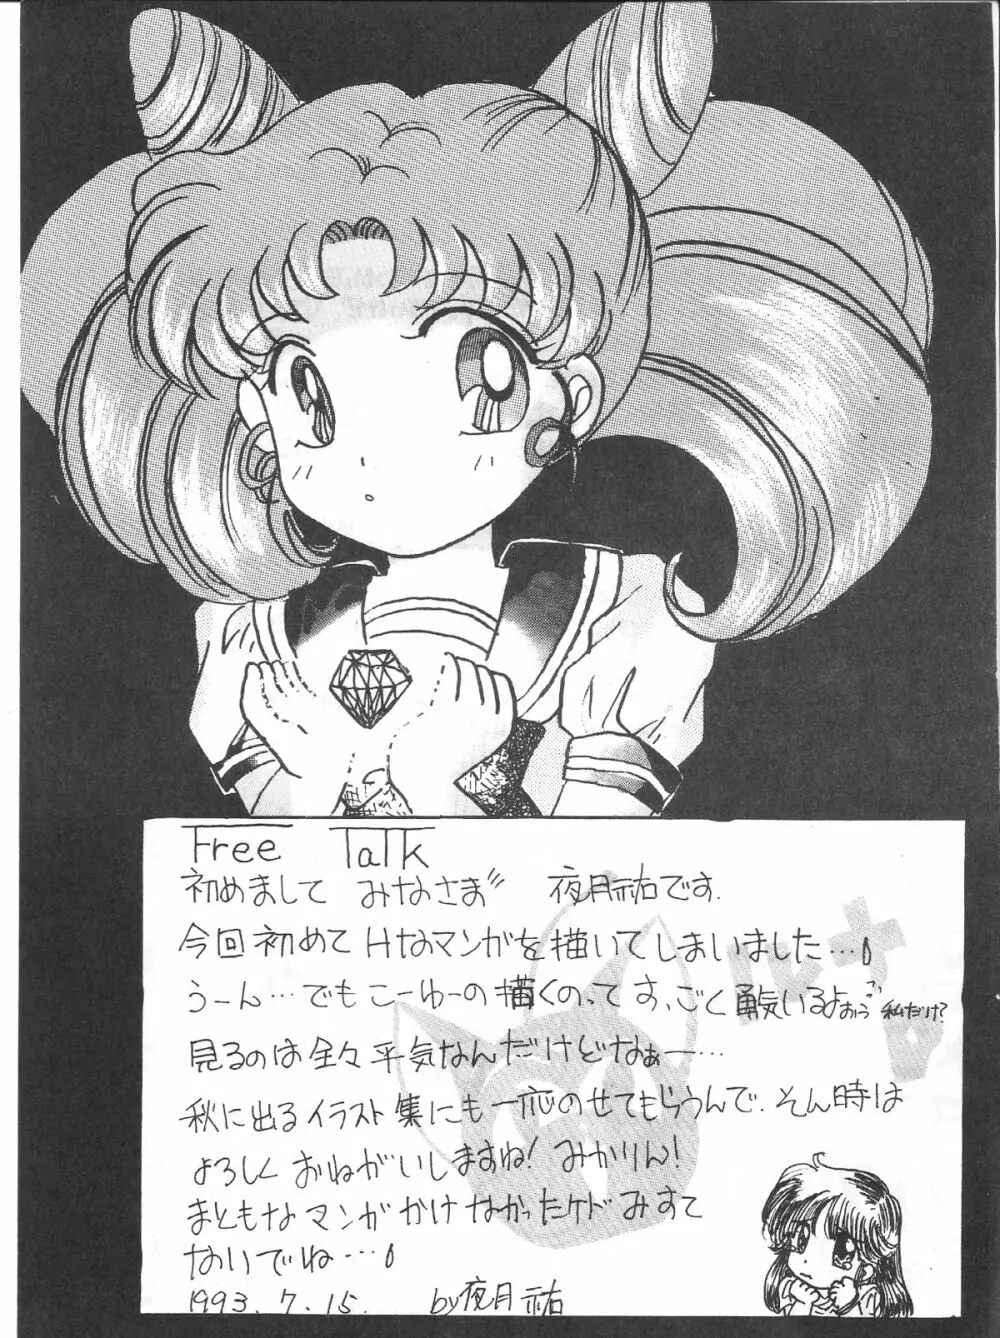 Free Talk
初めまして みなさま〃 夜月祐です.
今回初めてHなマンガを描いてしまいました…
うーん…でもこーゆーの描くのってす、ごく勇気いるよおぅ 私だけ?
見るのは全々平気なんだけどなぁー…
秋に出るイラスト集にも一応のせてもらうんで.そん時は
よろしくおねがいしますね!みかりん!
まともなマンガかけなかったケドみすて
ないでね…
1993.7.15. by夜月祐